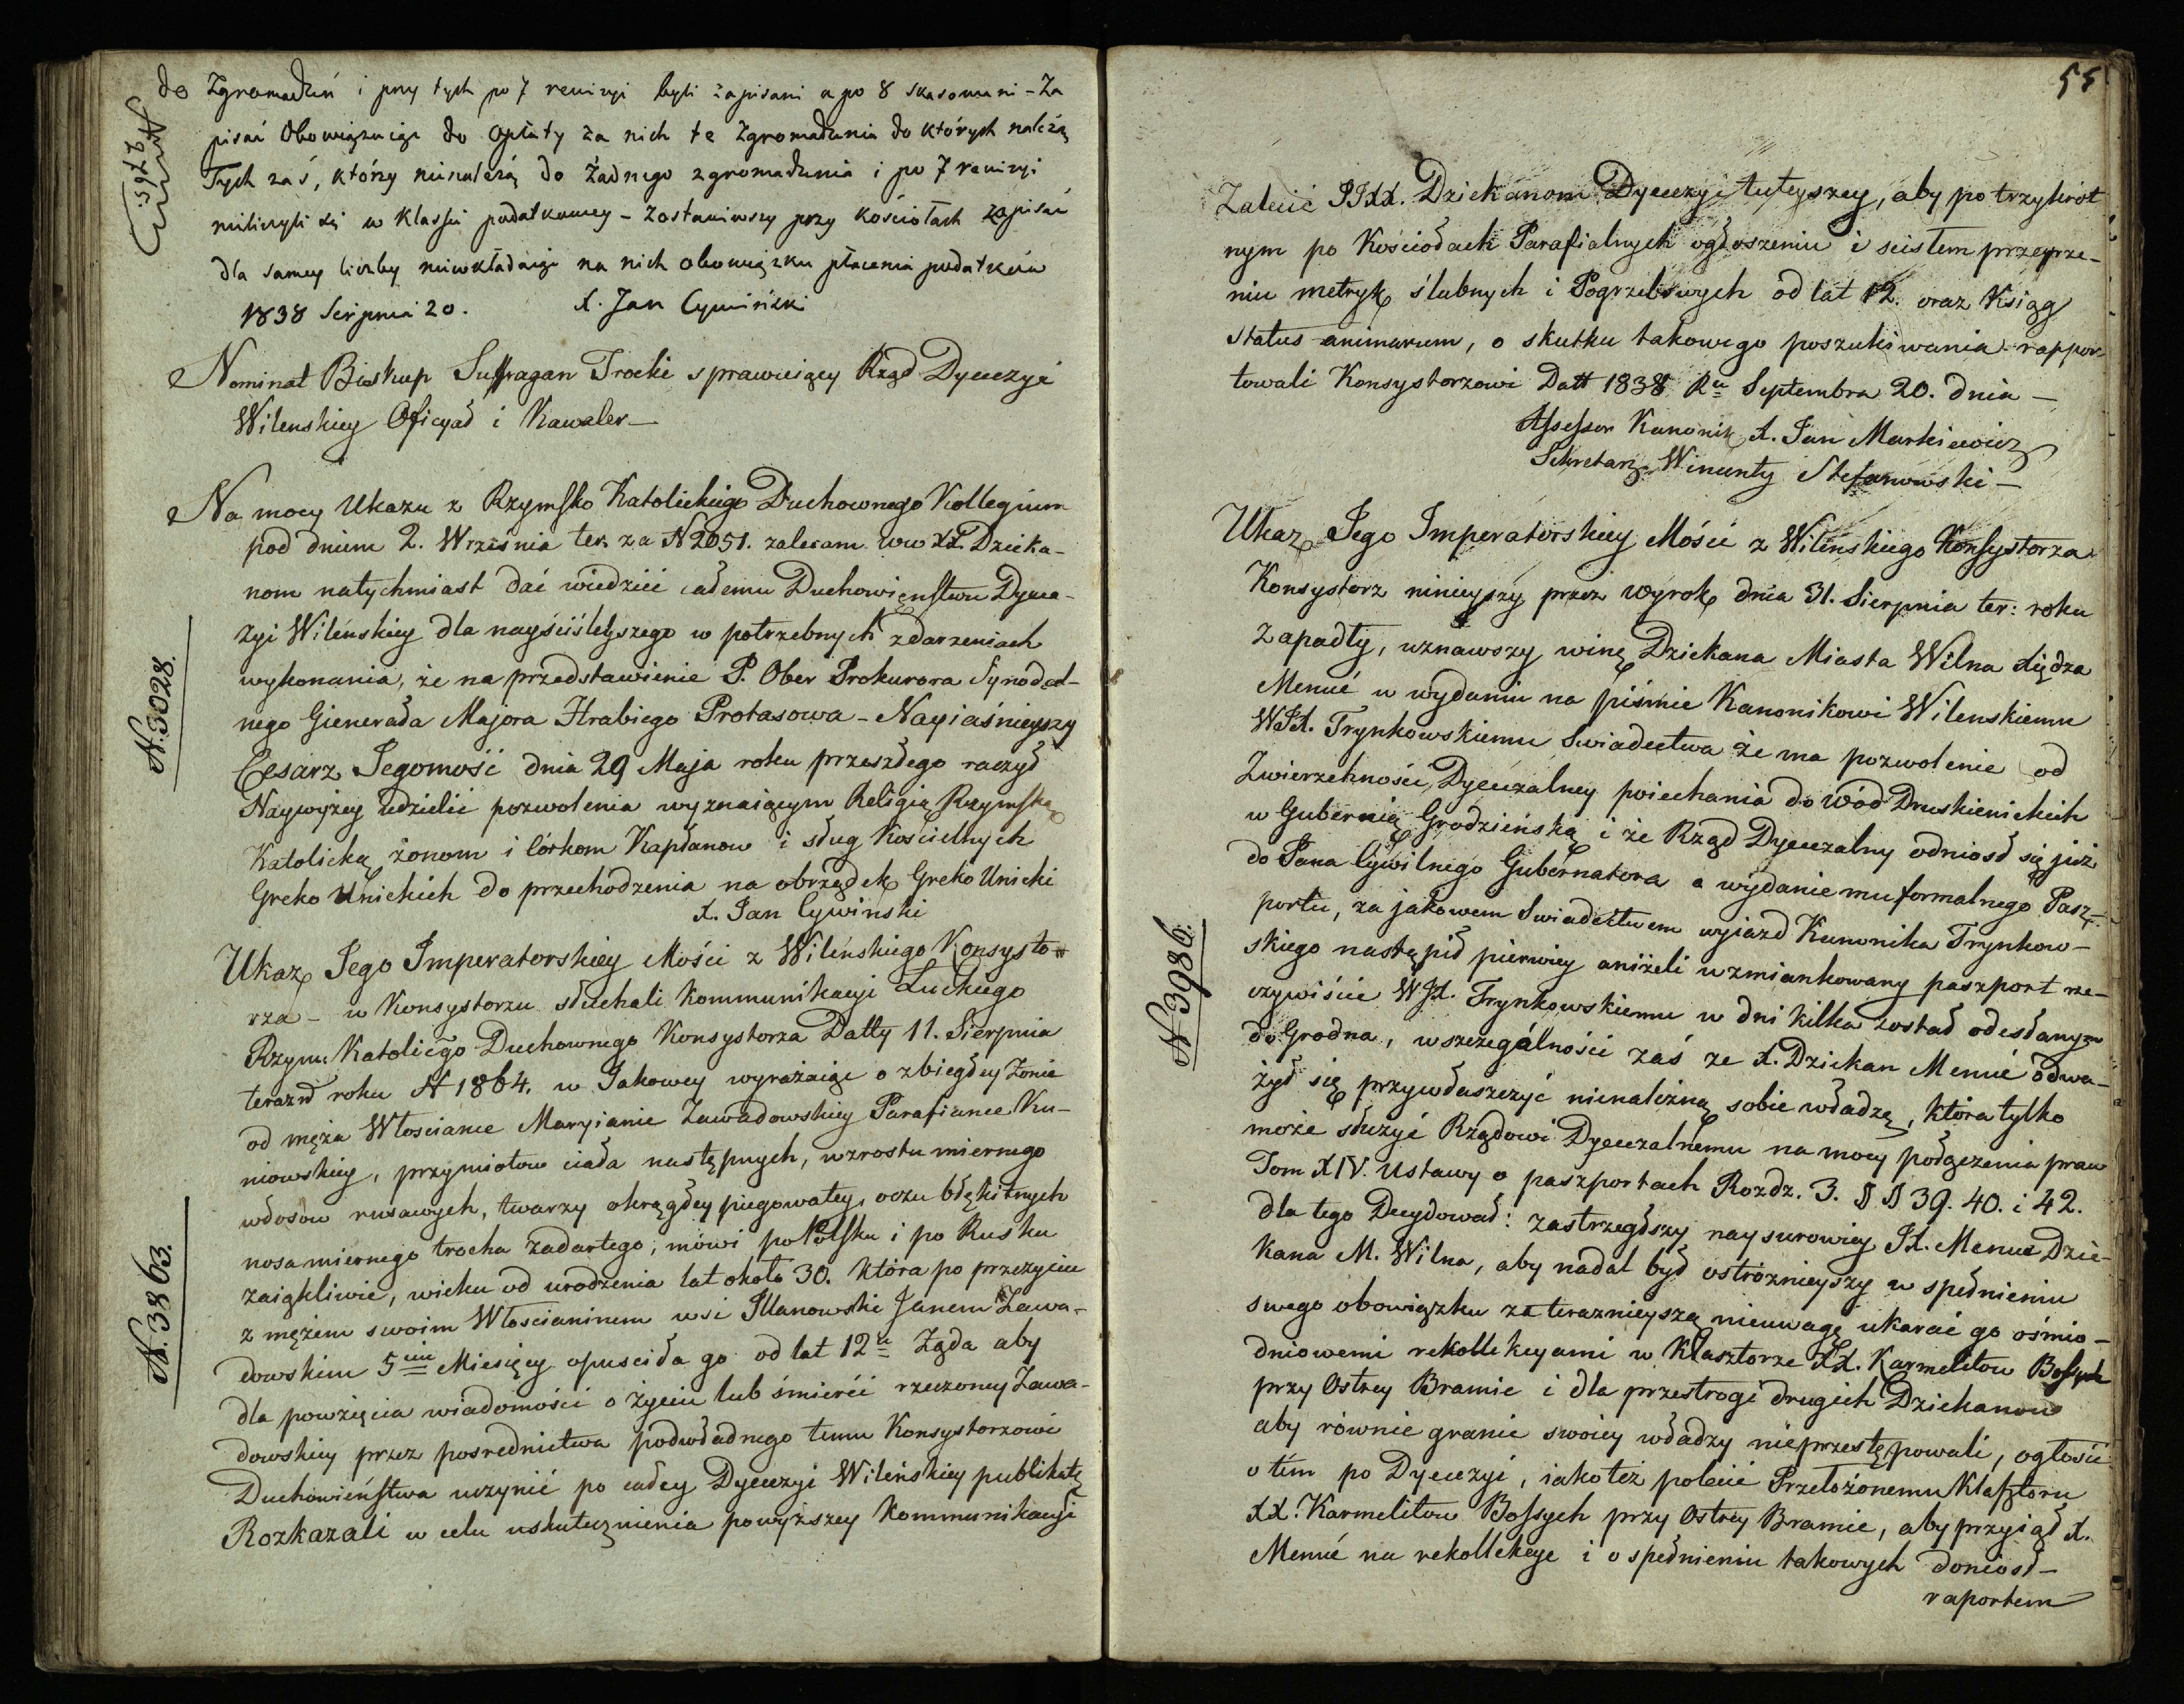 do Zgromadzeń i przy tych po 7 rewizyi byli zapisani a po 8 skasowani - Za
pisać Obowiązuiąc do opłaty za nich te Zgromadzenia do których należą
Tych zaś, którzy nienależą do żadnego zgromadzenia i po 7 rewizyi
nieliczyli się w klassie podatkowey - Zostawiwszy przy kościołach zapisać
dla samey liczby niewkładaiąc na nich obowiązku płacenia podatków
1838 Sierpnia 20. X. Jan Cywiński
Nominat Biskup Suffragan Trocki sprawuiący Rząd Dyecezyi
Wilenskiey Oficyał i Kawaler —
Na mocy Ukazu z Rzymsko Katolickiego Duchownego Kollegium
pod dniem 2. Września ter. za N 2051. zalecam WW XX. Dzieka-
nom natychmiast dać wiedzieć całemu Duchowieństwu Dyece-
zyi Wileńskiey dla nayściśleyszego w potrzebnych zdarzeniach
N. 3028.
wykonania, że na przedstawienie P. Ober Prokurora Synodal-
nego Gienerała Majora Hrabiego Protasowa - Nayiaśnieyszy
Cesarz Jegomość dnia 29 Maja roku przeszłego raczył
Naywyżey udzielić pozwolenia wyznaiącym Religię Rzymska
Katolicką żonom i córkom Kapłanow i sług Kościelnych
Greko Unickich do przechodzenia na obrządek Greko Unicki
X. Jan Cywinski
Ukaz Jego Imperatorskiey Mości z Wileńskiego Konsysto-
rza - w Konsystorzu słuchali Kommunikacyi Łuckiego
Rzymu Katoliego Duchownego Konsystorza Datty 11. Sierpnia
terazn roku N 1864. w Jakowey wyrażaiąc o zbiegłey Zonie
od męża Włościance Maryianie Zawadowskiey Parafiance Ku-
niowskiey, przymiotow ciała następnych, wzrostu miernego
włosow rusawych, twarzy okrągłey piegowatey, oczu błękitnych
N. 3863.
nosa miernego trocha zadartego, mówi po Polsku i po Rusku
zaiąkliwie, wieku od urodzenia lat około 30. która po przeżyciu
z mężem swoim Włościaninem wsi Illanowski Janem Zawa-
dowskim 5ciu Miesięcy opuściła go od lat 12u Żąda aby
dla powzięcia wiadomości o życiu lub śmierći rzeczoney Zawa-
dowskiey przez posrednictwa podwładnego temu Konsystorzowi
Duchowieństwa uczynić po całey Dyecezyi Wileńskiey publikatę
Rozkazali w celu uskutecznienia powyższey Kommunikacyi
55
Zalecić JJXX. Dziekanom Dyecezyi tuteyszey, aby po trzykrot
nym po Kościołach Parafialnych ogłoszeniu i scisłem przeyrze-
niu metryk ślubnych i Pogrzebowych od lat 12. oraz Ksiąg
status animarum, o skutku takowego poszukiwania rappor-
towali Konsystorzowi Datt 1838 Ru Septembra 20. dnia —
Assessor Kanonik X. Jan Markiewicz
Sekretarz Wincenty Stefanowski —
Ukaz Jego Imperatorskiey Mości z Wileńskiego Konsystorza
Konsystorz ninieyszy przez wyrok dnia 31. Sierpnia ter: roku
Zapadły, uznawszy winę Dziekana Miasta Wilna Xiędza
Menué w wydaniu na piśmie Kanonikowi Wilenskiemu
WJX. Trynkowskiemu Swiadectwa że ma pozwolenie od
Zwierzchności Dyecezalney poiechania do wód Druskienickich
w Gubernią Grodzieńską i że Rząd Dyecezalny odniosł się już
do Pana Cywilnego Gubernatora o wydanie mu formalnego Pasz-
portu, za jakowem Swiadectwem wyiazd Kanonika Trynkow-
N 3986.
skiego nastąpił pierwiey aniżeli wzmiankowany paszport rze-
czywiście WJX. Trynkowskiemu w dni kilka został odesłanym
do Grodna, w szczególności zaś ze X. Dziekan Menué odwa-
żył się przywłaszczyć nienależną sobie władzę, która tylko
może służyć Rządowi Dyecezalnemu na mocy połączenia praw
Tom XIV. Ustawy o paszportach Rozdz. 3. § § 39. 40. i 42.
dla tego Decydował: zastrzegłszy naysurowiey JX. Menue Dzie-
kana M. Wilna, aby nadal był ostrożnieyszy w spełnieniu
swego obowiązku za teraznieyszą nieuwagę ukarać go ośmio-
dniowemi rekollekcyami w Klasztorze XX. Karmelitow Bossych
przy Ostrey Bramie i dla przestrogi drugich Dziekanow
aby równie granic swoiey władzy nieprzestępowali, ogłosić
o tém po Dyecezyi, iako też polecić Przełożonemu Klasztoru
XX. Karmelitow Bossych przy Ostrey Bramie, aby przyiął X.
Menué na rekollekcye i o spełnieniu takowych doniosł —
raportem